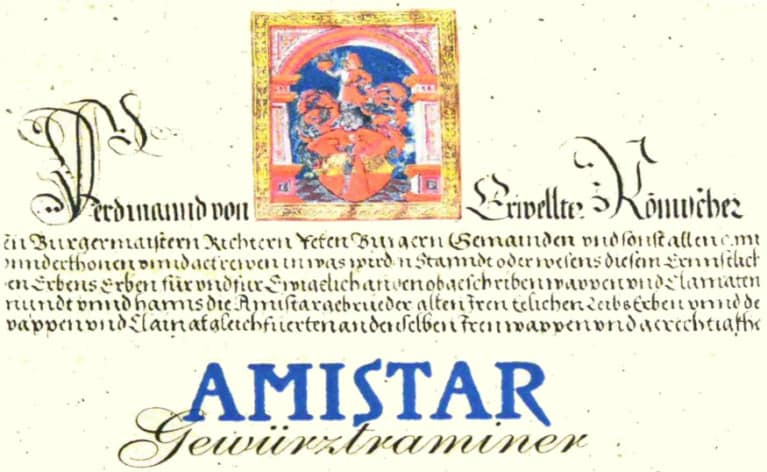 Ferdinannd von Erwellter Römischer
en Burgermaistern Richtern Reten Burgern Gemainden vnd sonst allen
vnnderthonen vnnd getrewen in was wirdn Stanndt oder wesens diesem Ernnstlich
en Erbens Erben für vnd für Ewigelich an den obgeschriben wappen vnd Clainaten
nunde vnnd hanns die Amistar gebrueder allen Iren Eelichen Leibs Erben vnnd de
wappen vnd Clainat gleich fuerten an denselben Iren wappen vnd gerechtigkhe
AMISTAR
Gewürztraminer